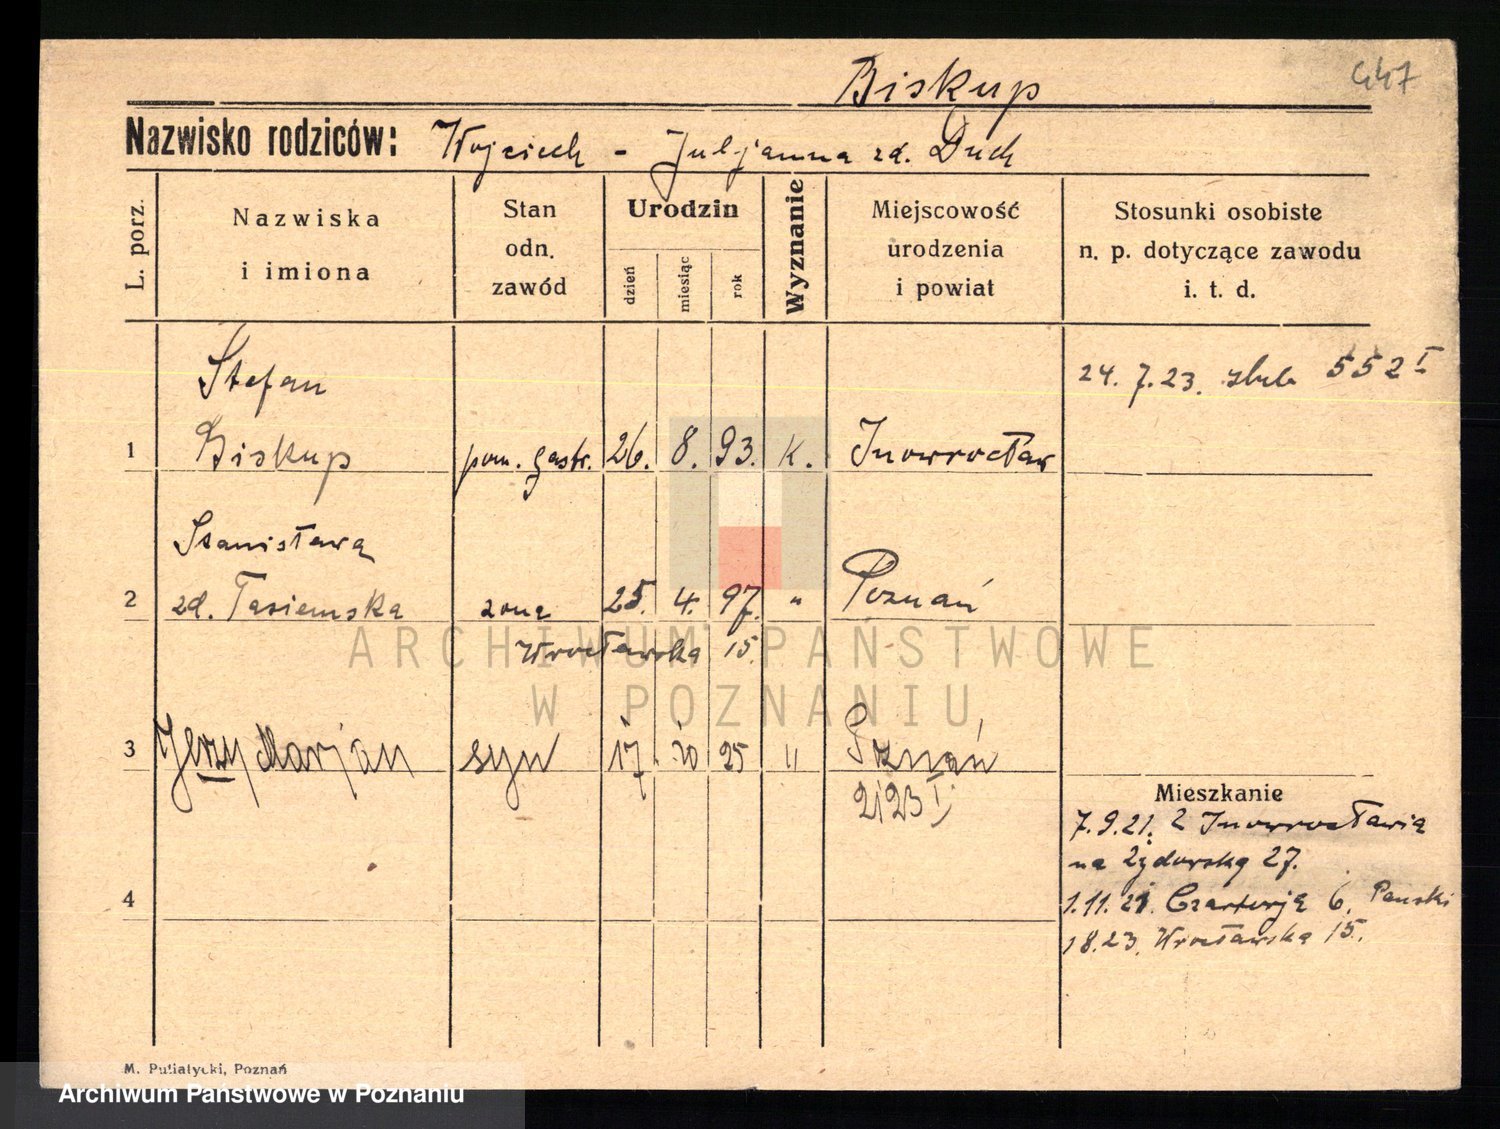 Biskup
447
Nazwisko rodziców: Wojciech - Juljanna zd. Duch
L. porz.
Nazwiska
i imiona
Stan
odn.
zawód
Urodzin
dzień
miesiąc
rok
Wyznanie
Miejscowość
urodzenia
i powiat
Stosunki osobiste
n. p. dotyczące zawodu
i. t. d.
Stefan
24. 7. 23. ślub 552 I
1 Biskup pom. gastr. 26. 8. 93. K. Inowrocław
Stanisława
2 zd. Tasiemska żona 25. 4. 97. " Poznań
Wrocławska 15.
3 Jerzy Marjan syn 17 10 25 " Poznań
2123 I
Mieszkanie
7. 9. 21. z Inowrocławia
na Żydowską 27.
4
1. 11. 21. Czartorja 6.
1 8. 23. Wrocławska 15.
M. Puliatycki, Poznań
ARCHIWUM PAŃSTWOWE
W POZNANIU
Archiwum Państwowe w Poznaniu